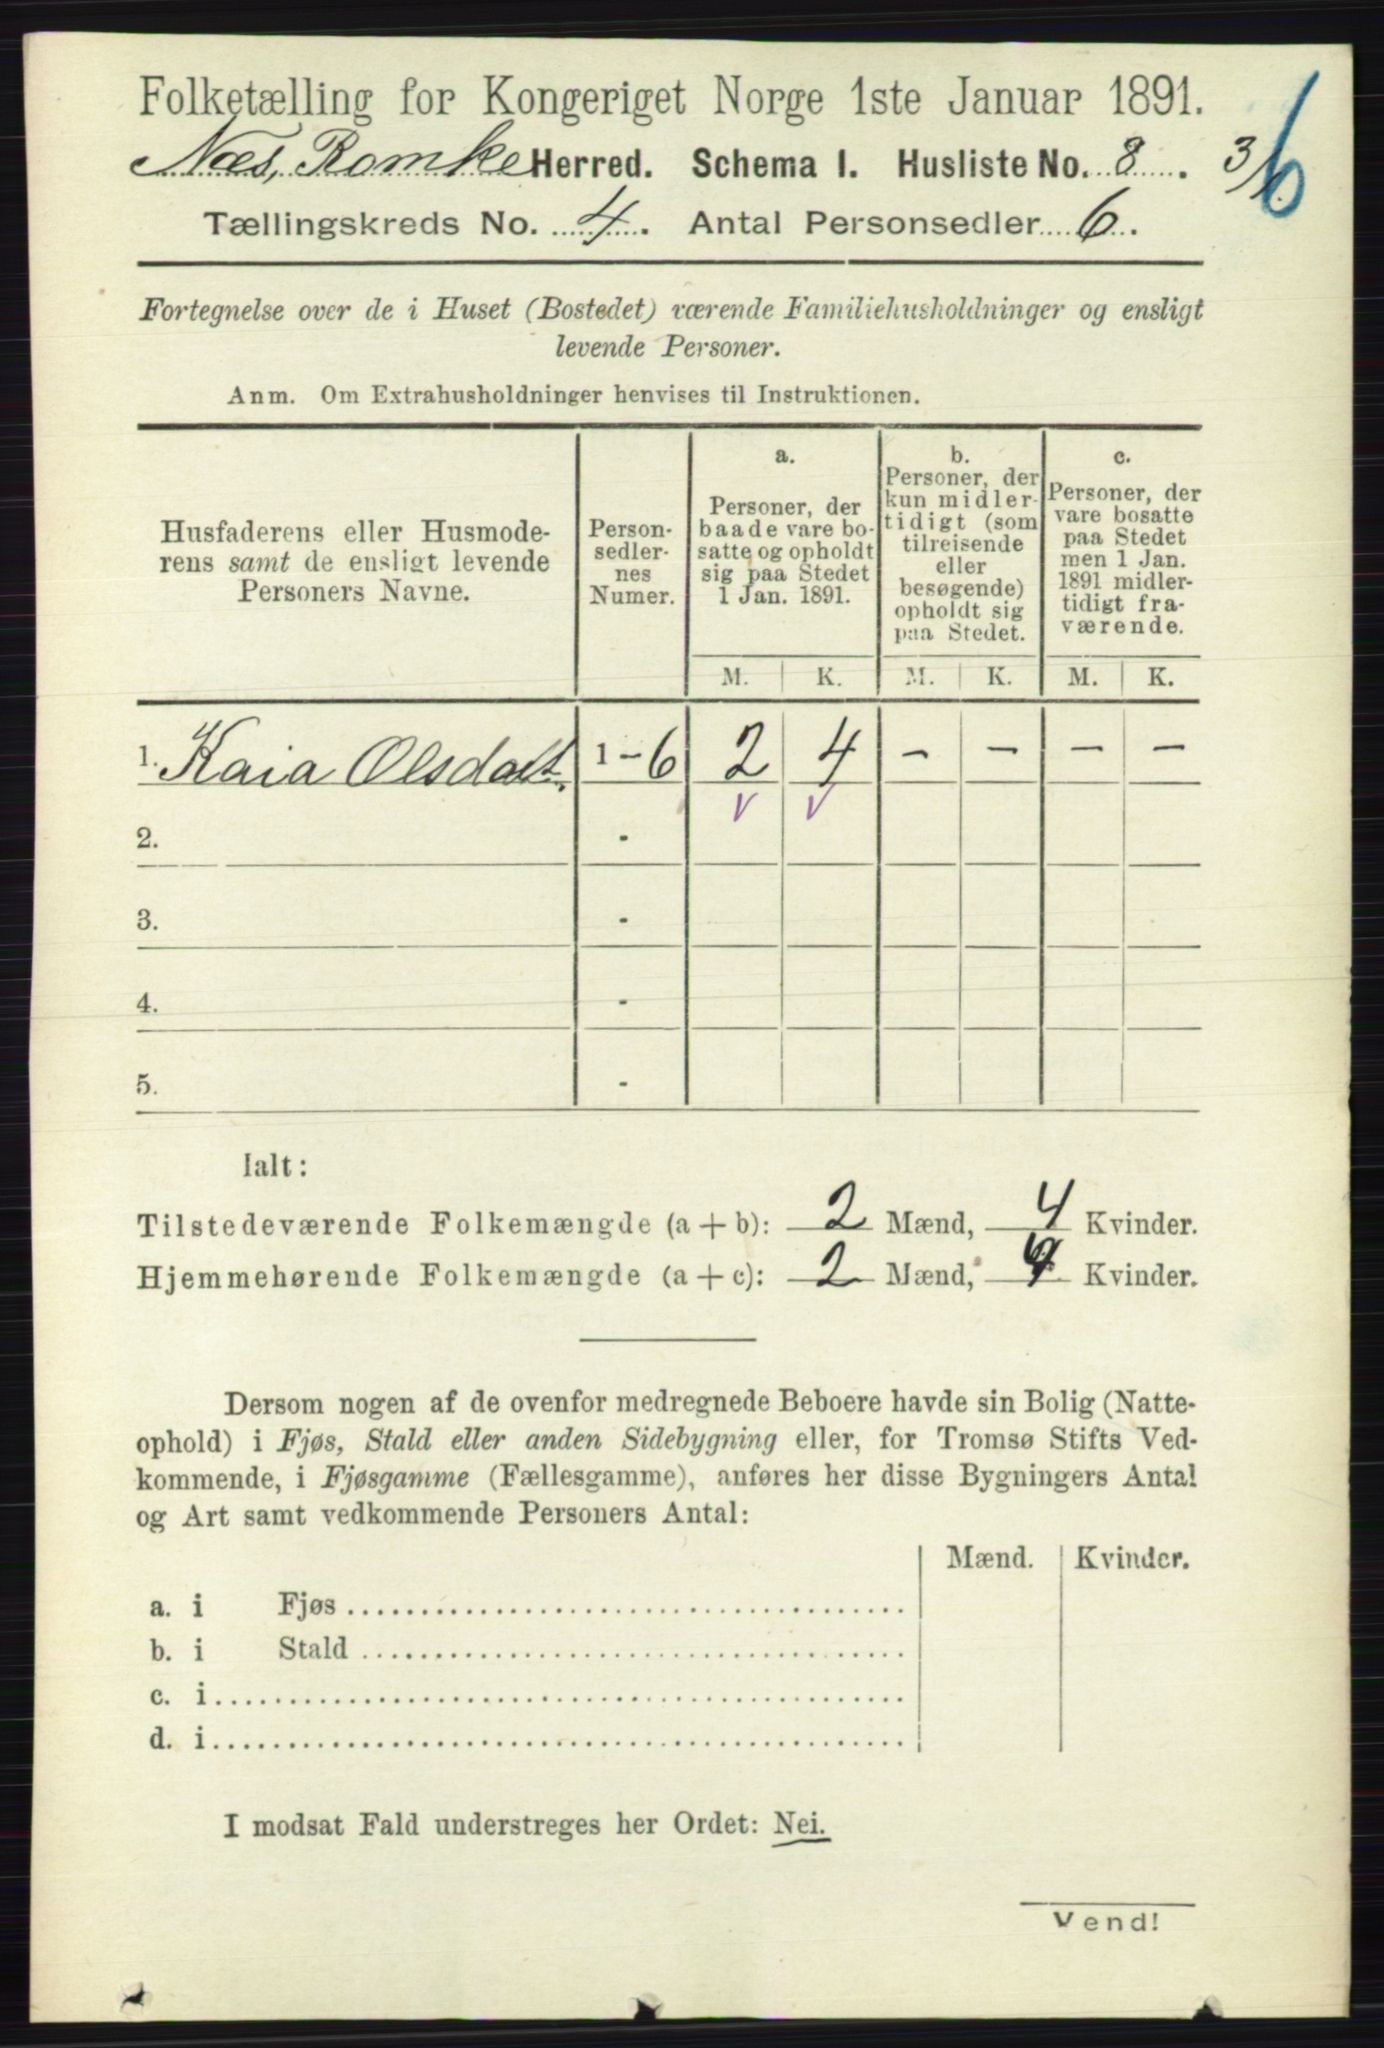 Folketælling for Kongeriget Norge 1ste Januar 1891.
Næs, Romke Herred. Schema I. Husliste No. 8.
3/6
Tællingskreds No. 4. Antal Personsedler 6.
Fortegnelse over de i Huset (Bostedet) værende Familiehusholdninger og ensligt
levende Personer.
Anm. Om Extrahusholdninger henvises til Instruktionen.
Husfaderens eller Husmode-
rens samt de ensligt levende
Personers Navne.
Person-
sedler-
nes
Numer.
a.
Personer, der
baade vare bo-
satte og opholdt
sig paa Stedet
1 Jan. 1891.
b.
Personer, der
kun midler-
tidigt (som
tilreisende
eller
besøgende)
opholdt sig
paa Stedet.
c.
Personer, der
vare bosatte
paa Stedet
men 1 Jan.
1891 midler-
tidigt fra-
værende.
M. K. M. K. M. K.
1. Kaia Olsdatt. 1 - 6 2 4 - - - -
2. -
3. -
4. -
5. -
Ialt:
Tilstedeværende Folkemængde (a + b): 2 Mænd, 4 Kvinder.
Hjemmehørende Folkemængde (a + c): 2 Mænd, 4 Kvinder.
Dersom nogen af de ovenfor medregnede Beboere havde sin Bolig (Natte-
ophold) i Fjøs, Stald eller anden Sidebygning eller, for Tromsø Stifts Ved-
kommende, i Fjøsgamme (Fællesgamme), anføres her disse Bygningers Antal
og Art samt vedkommende Personers Antal:
Mænd. Kvinder.
a. i Fjøs
b. i Stald
c. i
d. i
I modsat Fald understreges her Ordet: Nei.
Vend!